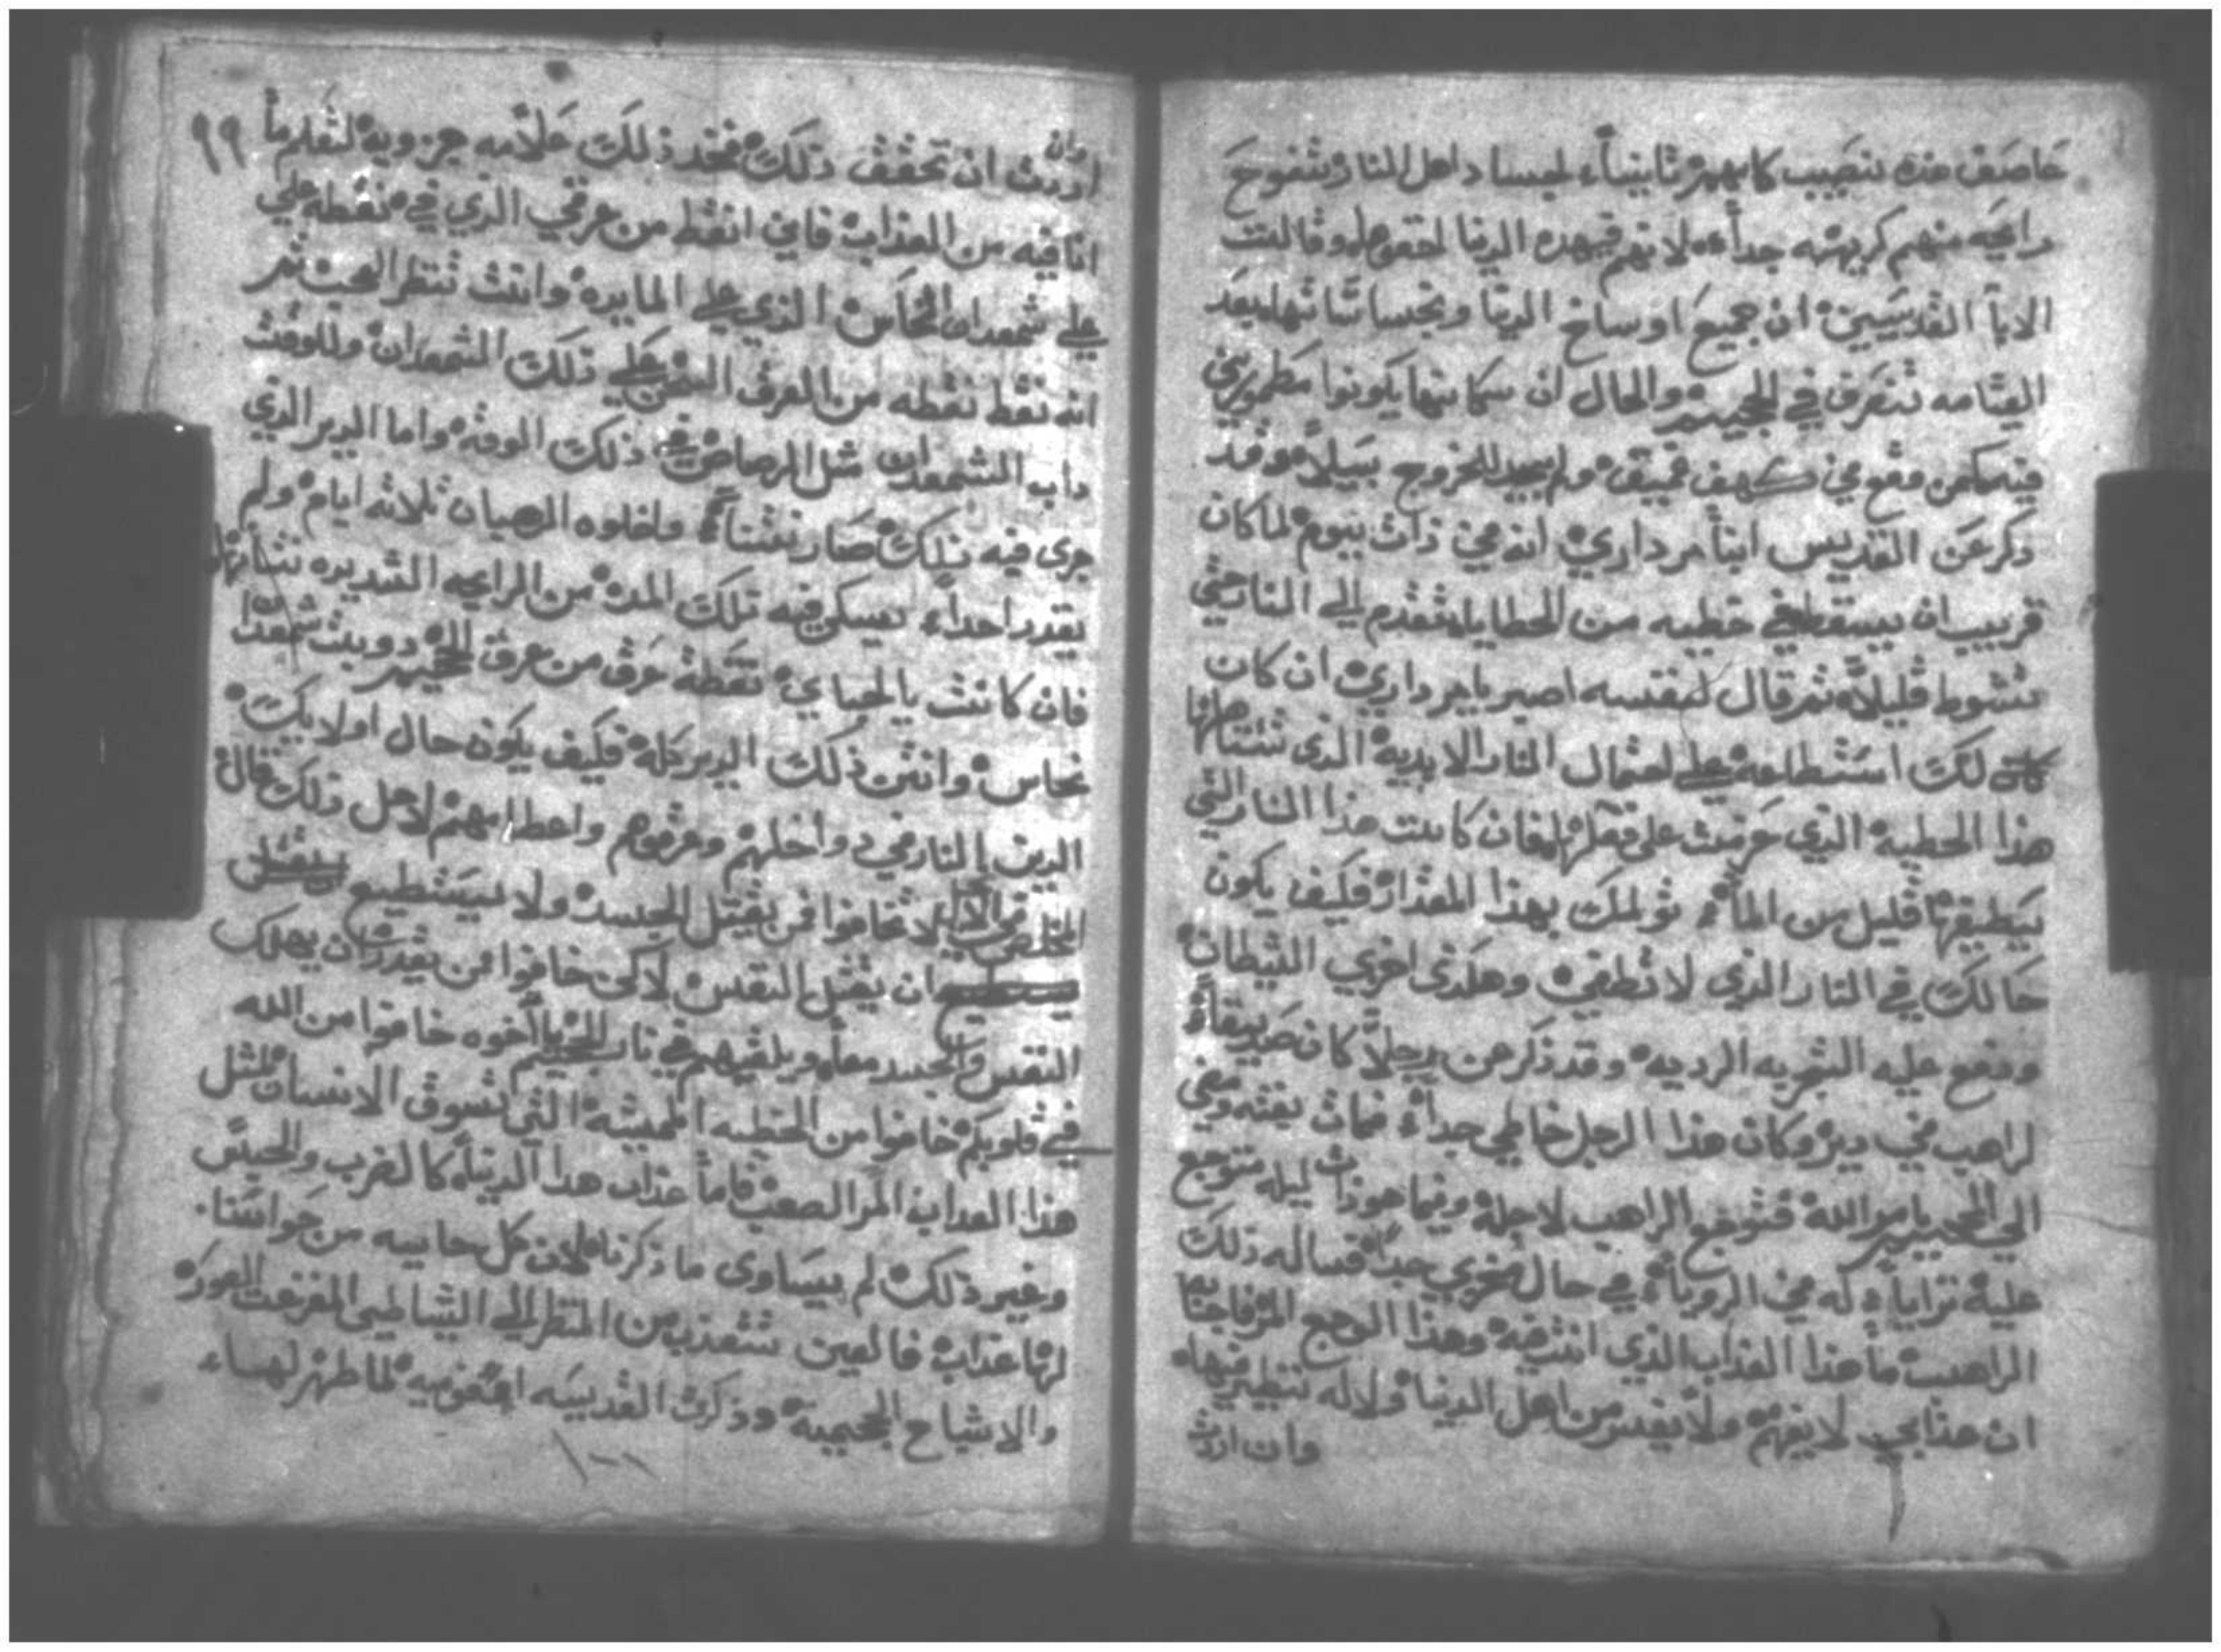 خاصف هذه تنصيب كابهم ثانيتاً لجسا داهل النار وتفوح
رايحه منهم كريهه جداً لانهم في هده الدنيا وقالت
الابآ القديسين ان جميع اوساخ الدنيا ونجساتها بعد
القيامه تنغرق في الجحيم والحال ان سكانها يكونوا مطمورين
فيه كمن وقع في كهف عميق ولم يجد للخروج سبيلاً وقد
ذكر عن القديس انبا مرداري انه في ذات يوم لما كان
قريب ان يسقط في خطيه من الخطايا تقدم الي النار حتي
تشوط قليلاً ثم قال لنفسه اصبر يا مرداري ان كان
كان لك استطاعه علي احتمال النار الابديه الذي تنتاها
هذا الخطيه الذي عزمت علي فعلها فان كانت هذا النار التي
يطيفها قليل من المآء تولمك بهذا المقدار فكيف يكون
حالك في النار الذي لا تطفي وهكذي اخزي الشيطان
ودفع عليه التجربه الرديه وقد ذكر عن رجلاً كان صديقاً
لراهب في دير وكان هذا الرجل خاطي جداً فمات بغته ومضي
الي الجحيم بامر الله فتوجع الراهب لاجله وفيما هو ذات ليله متوجع
عليه ترايا له في الرويا في حال مخزي جداً فساله ذلك
الراهب ما هذا العذاب الذي انت فيه وهذا الوجع المر فاجابه
ان عذابي لا يفهم ولا من اهل الدنيا ولاله نظير فيها
وان اردت
٩٩
وان
اردت ان تحقق ذلك فخد ذلك علامه جزويه لتعلم ما
انا فيه من العذاب فاني انقط من عرقي الذي في نقطه علي
علي شمعدان النحاس الذي علي المايده وانت تنظر العجب ثم
انه نقط نقطه من العرق علي ذلك الشمعدان وللوقت
داب الشمعدان مثل الرصاص في ذلك الوقت واما الدير الذي
جرى فيه ذلك صار نتناً واخلوه الرهبان ثلاثه ايام ولم
يقدر احداً يسكن فيه تلك المده من الرايحه الشديده نتانتها
فان كانت يا احباي نقطة عرق من عرق الجحيم دوبت شمعدان
نحاس وانتن ذلك الدير كله فكيف يكون حال اولايك
الدين النار في دواخلهم وعروقهم واعظامهم لاجل ذلك قال
المخلص لا تخافوا ممن يقتل الجسد ولا يستطيع
ان يقتل النفس لاكن خافوا ممن يقدر ان يهلك
النفس والجسد معاً ويلقيهم في نار الجحيم يا اخوه خافوا من الله
في قلوبكم خافوا من الخطيه المميته التي تسوق الانسان لمثل
هذا العذاب المر الصعب فاما عذاب هذا الدنيا كالضرب والحبس
وغير ذلك لم يساوي ما ذكرناه لان كل حاسه من حواسنا
لها عذاب فالعين تتعذب من النظر الي الشياطين المفزعت الصور
والاشباح الجحيميه وذكرت القديسه لما ظهر لها
١٠٠